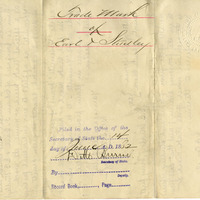 Trade Mark
of
Earl & Smiley
Filed in the Office of the
Secretary of State the 14
day of
Secretary of State.
By
Deputy.
Record Book Page